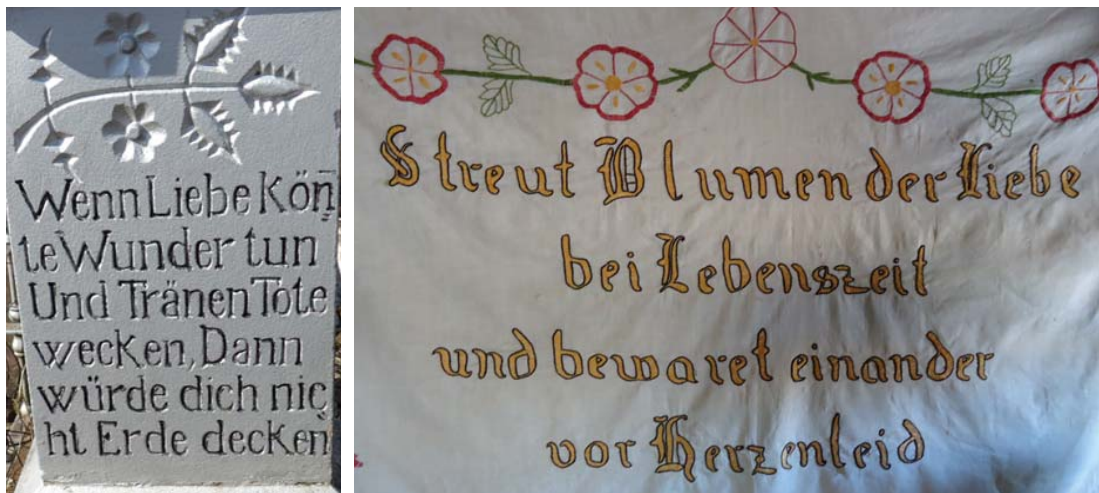 Wenn Liebe Kön̅
te Wunder tun
Und Tränen Tote
wecken, Dann
würde dich nic
ht Erde decken
Streut Blumen der Liebe
bei Lebenszeit
und bewaret einander
vor Herzenleid